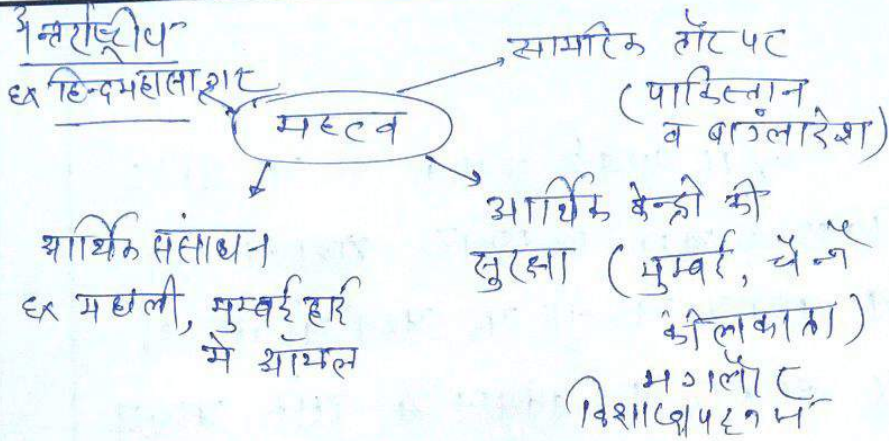 अन्तर्राष्ट्रीय
ex हिन्दमहासागर
महत्व
सामरिक तौर पर
(पाकिस्तान
व बांग्लादेश)
आर्थिक संसाधन
ex मछली, मुम्बई हाई
मे आयल
आर्थिक केन्द्रो की
सुरक्षा (मुम्बई, चेन्नै
कोलकाता)
मगलौर
विशाखापट्नम